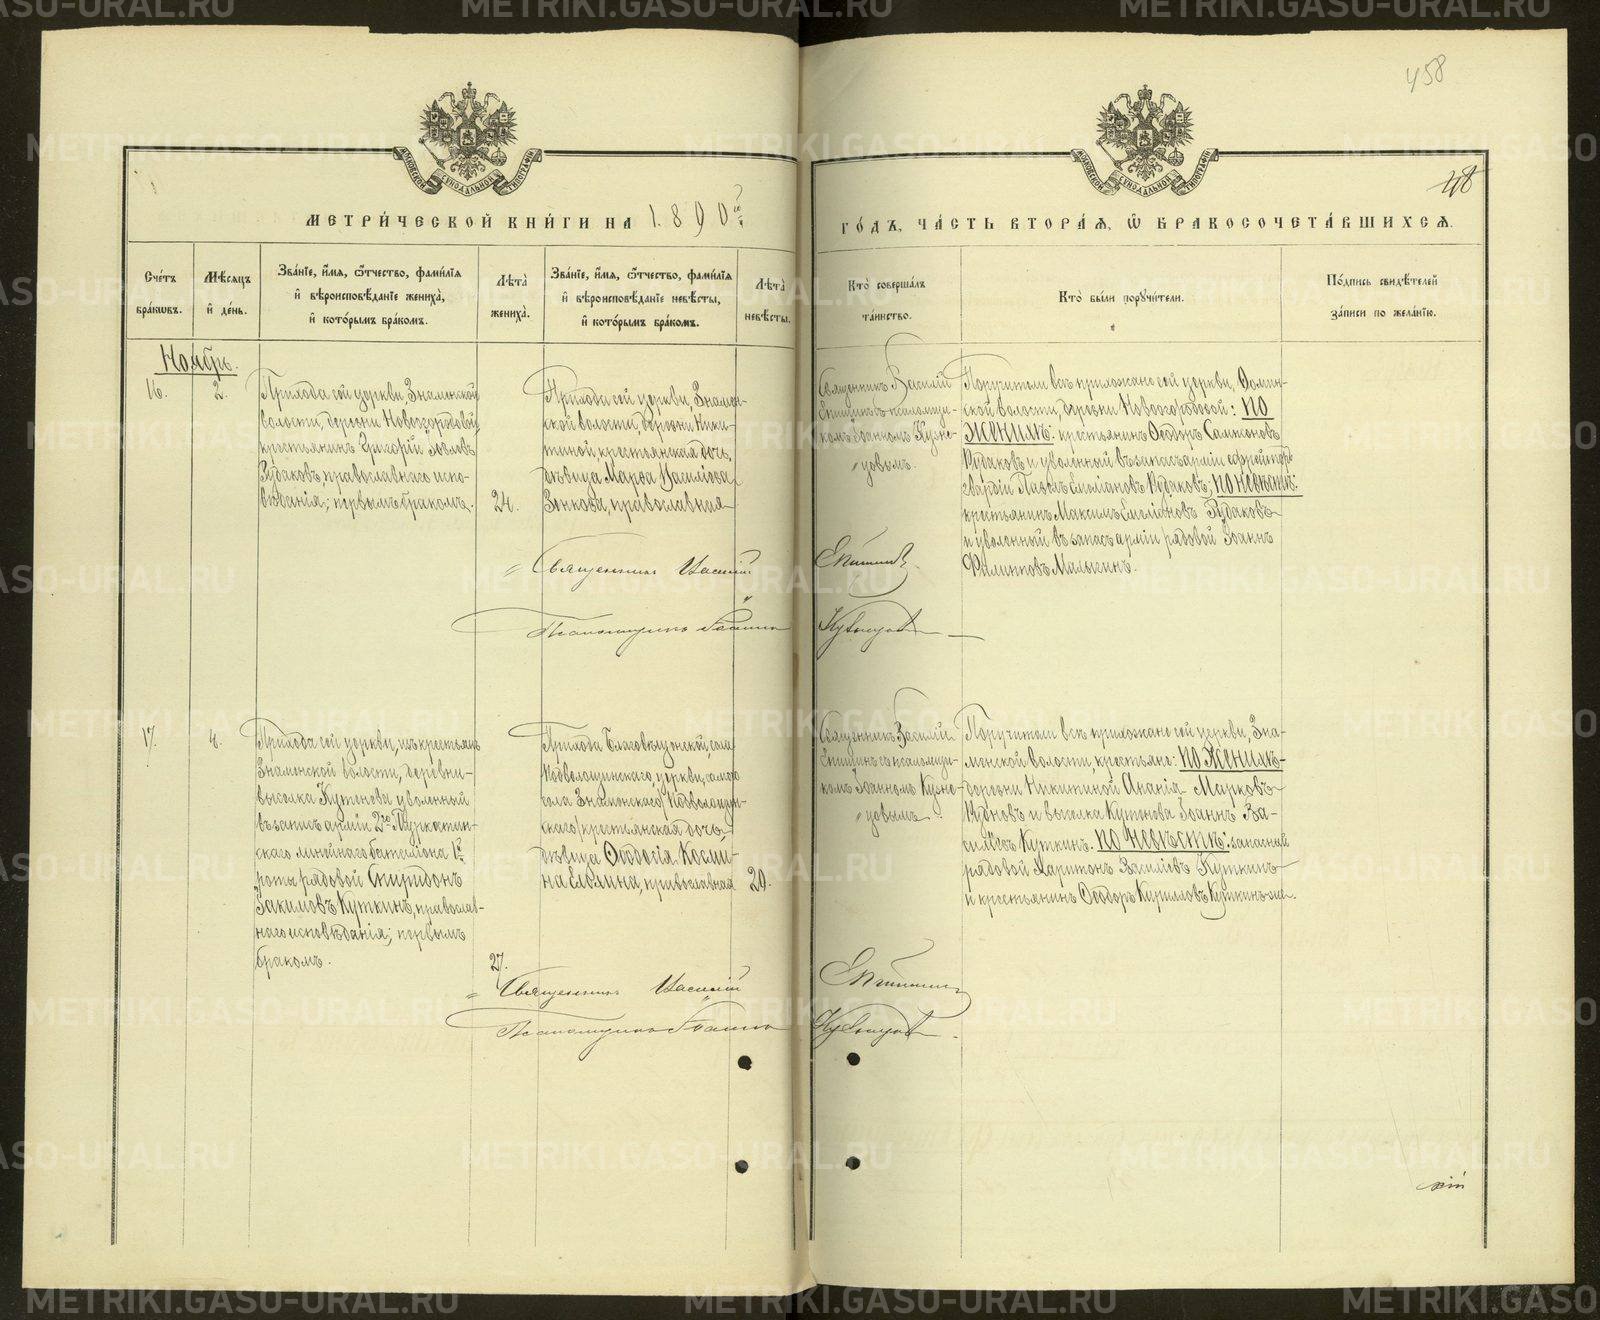 458
48
МОСКОВСКОЙ СѴНОДАЛЬНОЙ ТИПОГРАФІИ
МОСКОВСКОЙ СѴНОДАЛЬНОЙ ТИПОГРАФІИ
МЕТРИ́ЧЕСКОЙ КНИ́ГИ НА 1890
ГО́ДЪ, ЧА́СТЬ ВТОРА́Я, Ѽ БРАКОСОЧЕТА́ВШИХСЯ.
Сче́тъ
бра́кѡвъ.
Мѣ́сяцъ
и҆ де́нь.
Зва́нїе, и҆́мя, ѻ҆́тчество, фами́лїя
и҆ вѣроисповѣ́данїе жениха̀,
и҆ кото́рымъ бра́комъ.
Лѣта̀
жениха̀.
Зва́нїе, и҆́мя, ѻ҆́тчество, фами́лїя
и҆ вѣроисповѣ́данїе невѣ́сты,
и҆ кото́рымъ бра́комъ.
Лѣта̀
невѣ́сты.
Кто̀ соверша́лъ
та́инство.
Кто̀ бы́ли поручи́тели.
По́дпись свидѣ́телей
за́писи по жела́нїю.
Ноябрь.
16.
2.
Прихода сей церкви, Знаменской
волости, деревни Новогородовой,
крестьянинъ Григорій Іовлевъ
Рудаковъ, православнаго испо-
вѣданія; первымъ бракомъ.
24.
Прихода сей церкви, Знамен-
ской волости, деревни Ники-
тиной, крестьянская дочь,
дѣвица Марѳа Василіева
Зенкова, православная
Священникъ Василій
Епишинъ съ псаломщи-
комъ Іоанномъ Кузне-
цовымъ.
Поручители всѣ прихожане сей церкви, Знамен-
ской волости, деревни Новогородовой: по
женихѣ: крестьянинъ Ѳеодоръ Сампсоновъ
Рудаковъ и уволенный въ запасъ арміи ефрейторъ
гвардіи Павелъ Емеліановъ Рудаковъ; по невѣстѣ:
крестьянинъ Максимъ Емеліановъ Рудаковъ
и уволенный въ запасъ арміи рядовой Іоаннъ
Филипповъ Малыгинъ.
Священникъ Василій Епишинъ.
Псаломщикъ Іоаннъ Кузнецовъ
17.
4.
Прихода сей церкви, изъ крестьянъ
Знаменской волости, деревни-
выселка Кутенева уволенный
въ запасъ арміи 2го Туркестан-
скаго линейнаго баталіона 1й
роты рядовой Спиридонъ
Іакимовъ Куткинъ, православ-
наго исповѣданія; первымъ
бракомъ.
27.
Прихода Благовѣщенской, села
Подволошинскаго, церкви, самого
села Знаменскаго (Подволошин-
скаго) крестьянская дочь
дѣвица Ѳеодосія Косми-
на Елохина, православная
20.
Священникъ Василій
Епишинъ съ псаломщи-
комъ Іоанномъ Кузне-
цовымъ.
Поручители всѣ прихожане сей церкви, Зна-
менской волости, крестьяне: по женихѣ-
деревни Никитиной Ананія Марковъ
и выселка Кутенева Іоаннъ Ва-
силіевъ Куткинъ. по невѣстѣ: запасный
рядовой Харитонъ Василіевъ Куткинъ
и крестьянинъ Ѳеодоръ Кирилловъ Куткинъ-же.
Священникъ Василій Епишинъ
Псаломщикъ Іоаннъ Кузнецовъ.
METRIKI.GASO-URAL.RU